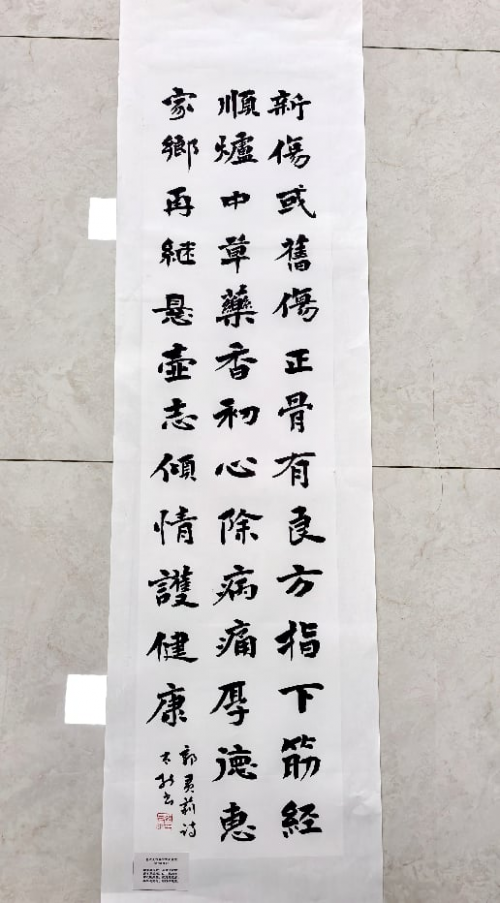 新傷或舊傷正骨有良方指下筋經
順爐中草藥香初心除病痛厚德惠
家鄉再継懸壺志傾情護健康
詩
書